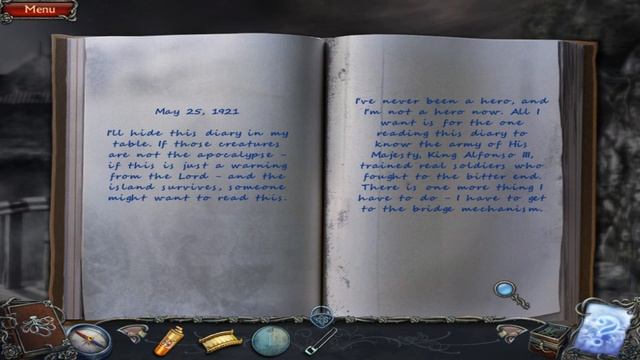 Menu
May 25, 1921
I'll hide this diary in my
table. If those creatures
are not the apocalypse -
if this is just a warning
from the Lord - and the
island survives, someone
might want to read this.
I've never been a hero, and
I'm not a hero now. All I
want is for the one
reading this diary to
know the army of His
Majesty, King Alfonso III,
trained real soldiers who
fought to the bitter end.
There is one more thing I
have to do - I have to get
to the bridge mechanism.